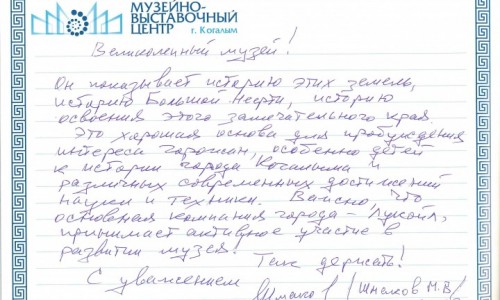 МУЗЕЙНО-
ВЫСТАВОЧНЫЙ
ЦЕНТР
г. Когалым
Великолепный музей!
Он показывает историю этих земель,
историю Большой Нефти, историю
освоения этого замечательного края.
Это хорошая основа для пробуждения
интереса горожан, особенно детей
к истории города Когалыма и
различных современных достижений
науки и техники. Важно, что
основная компания города – Лукойл,
принимает активное участие в
развитии музея. Так держать!
С уважением /Шмаков М.В/